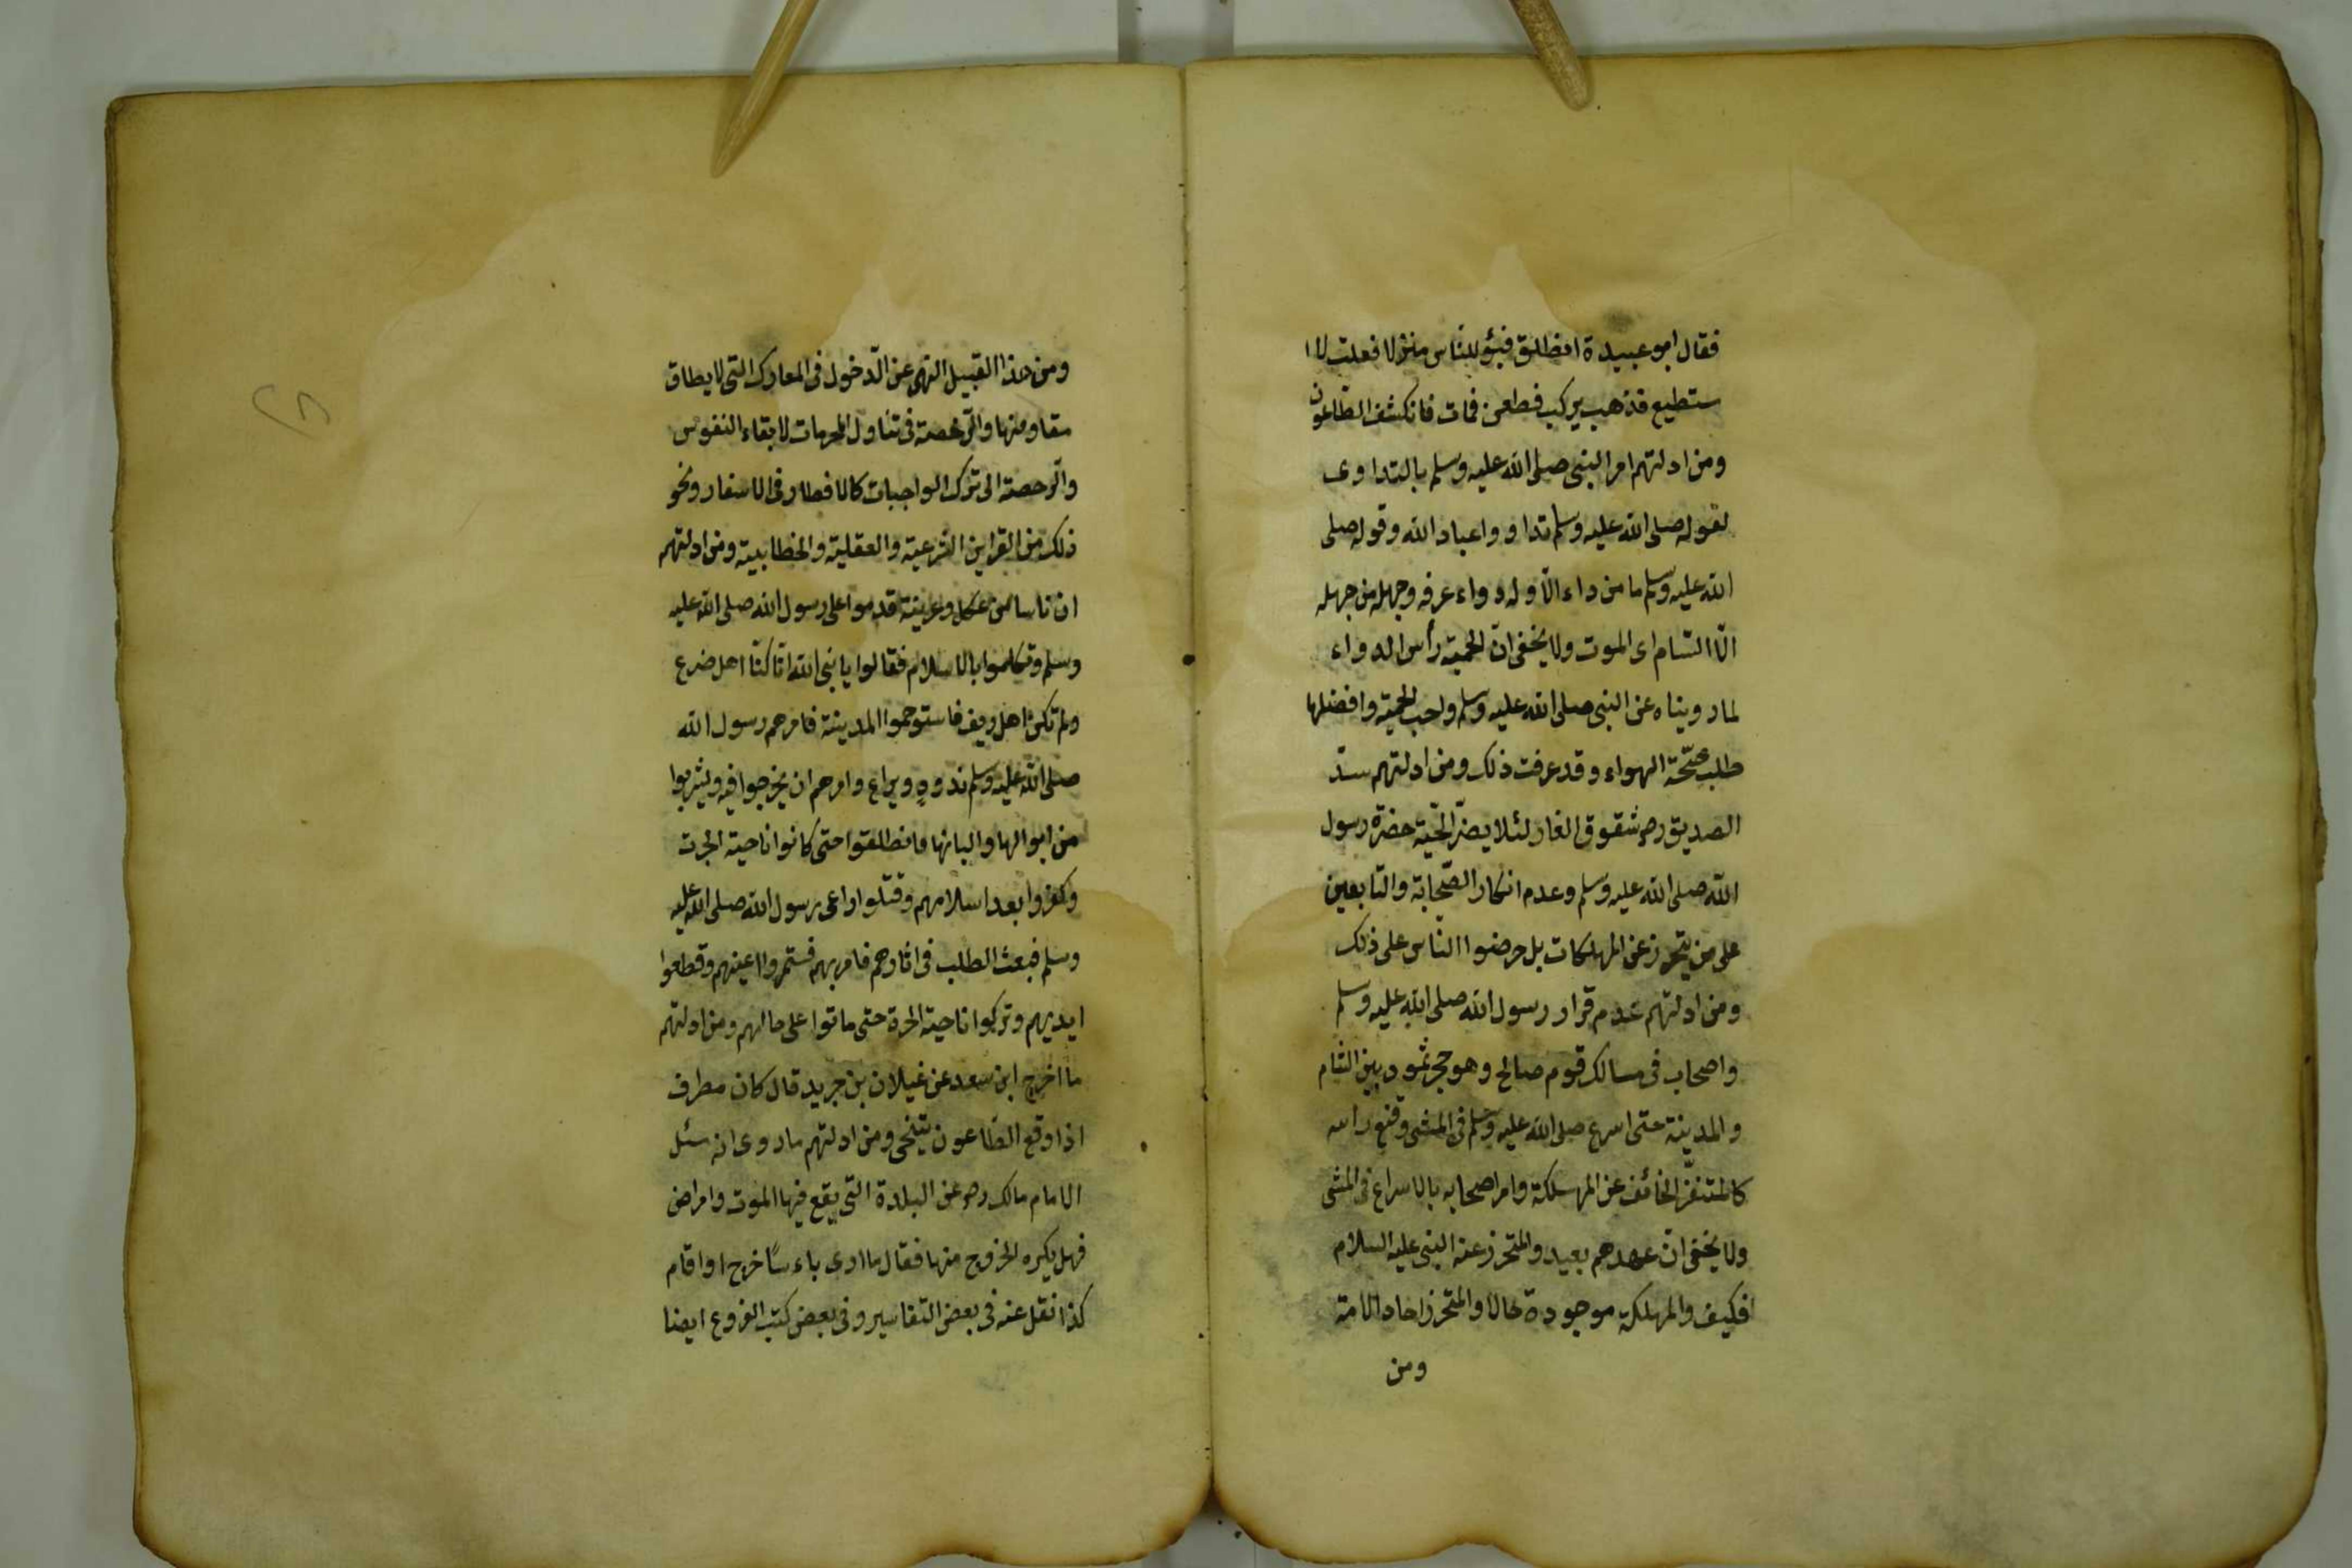 فقال ابو عبيدة انطلق فبؤّ للنّاس منزلا فقلت لا ا
ستطيع فذهب يركب فطعن فمات فانكشف الطّاعون
ومن ادلتهم امر النبى صلى الله عليه وسلم بالتداوى
لقوله صلى الله عليه وسلم تداووا عباد الله وقوله صلى
الله عليه وسلم ما من داء الّا وله دواء عرفه وجهله من جهله
الّا السّام اى الموت ولا يخفى انّ الحميّة رأس الدواء
لما رويناه عن النبى صلى الله عليه وسلم واجب الحميّة وافضلها
طلب صحّة الهواء وقد عرفت ذلك ومن ادلتهم سدّ
الصديق رحه شقوق الغار لئلا يضرّ الحيّة حضرة رسول
الله صلى الله عليه وسلم وعدم انكار الصّحابة والتّابعين
على من يتحرز عن المهلكات بل حرضوا النّاس على ذلك
ومن ادلتهم عدم قرار رسول الله صلى الله عليه وسلم
واصحاب فى مسالك قوم صالح وهو حجر ثمود بين الشام
والمدينة حتى اسرع صلى الله عليه وسلم فى المشى وقنع راسه
كالمتنفّر الخائف عن المهلكة وامر اصحابه بالاسراع فى المشى
ولا يخفى انّ عهدهم بعيد والمتحرز عنه النبى عليه السلام
افكيف والمهلكة موجودة حالا والمتحرز احاد الامة
ومن
ومن هذا القبيل النهى عن الدّخول فى المعارك التى لا يطاق
مقاومتها والرّخصة فى تناول المحرمات لابقاء النفوس
والرّخصة الى ترك الواجبات كالافطار فى الاسفار ونحو
ذلك من القراين الشرعية والعقلية والخطابية ومن ادلتهم
ان ناسا من عكل وعرينة قدموا على رسول الله صلى الله عليه
وسلم وتكلموا بالاسلام فقالوا يا نبى الله انّا كنّا اهل ضرع
ولم تكن اهل ريف فاستوخموا المدينة فامرهم رسول الله
صلى الله عليه وسلم بذود وبراع وامرهم ان يخرجوا فيه ويشربوا
من ابوالها والبانها فانطلقوا حتى كانوا ناحية الحرت
وكفروا بعد اسلامهم وقتلوا راعى رسول الله صلى الله عليه
وسلم فبعث الطلب فى اثارهم فامر بهم فسمروا اعينهم وقطعوا
ايديهم وتركوا ناحية الحرة حتى ماتوا على حالهم ومن ادلتهم
ما اخرج ابن سعد عن غيلان بن جريد قال كان مطرف
اذا وقع الطّاعون يتنحى ومن ادلتهم ما روى انه سئل
الامام مالك رحه عن البلدة التى يقع فيها الموت وامراض
فهل يكره الخروج منها فقال ما ارى باء سًا خرج او اقام
كذا نقل عنه فى بعض التفاسير وفى بعض كتب الفروع ايضا